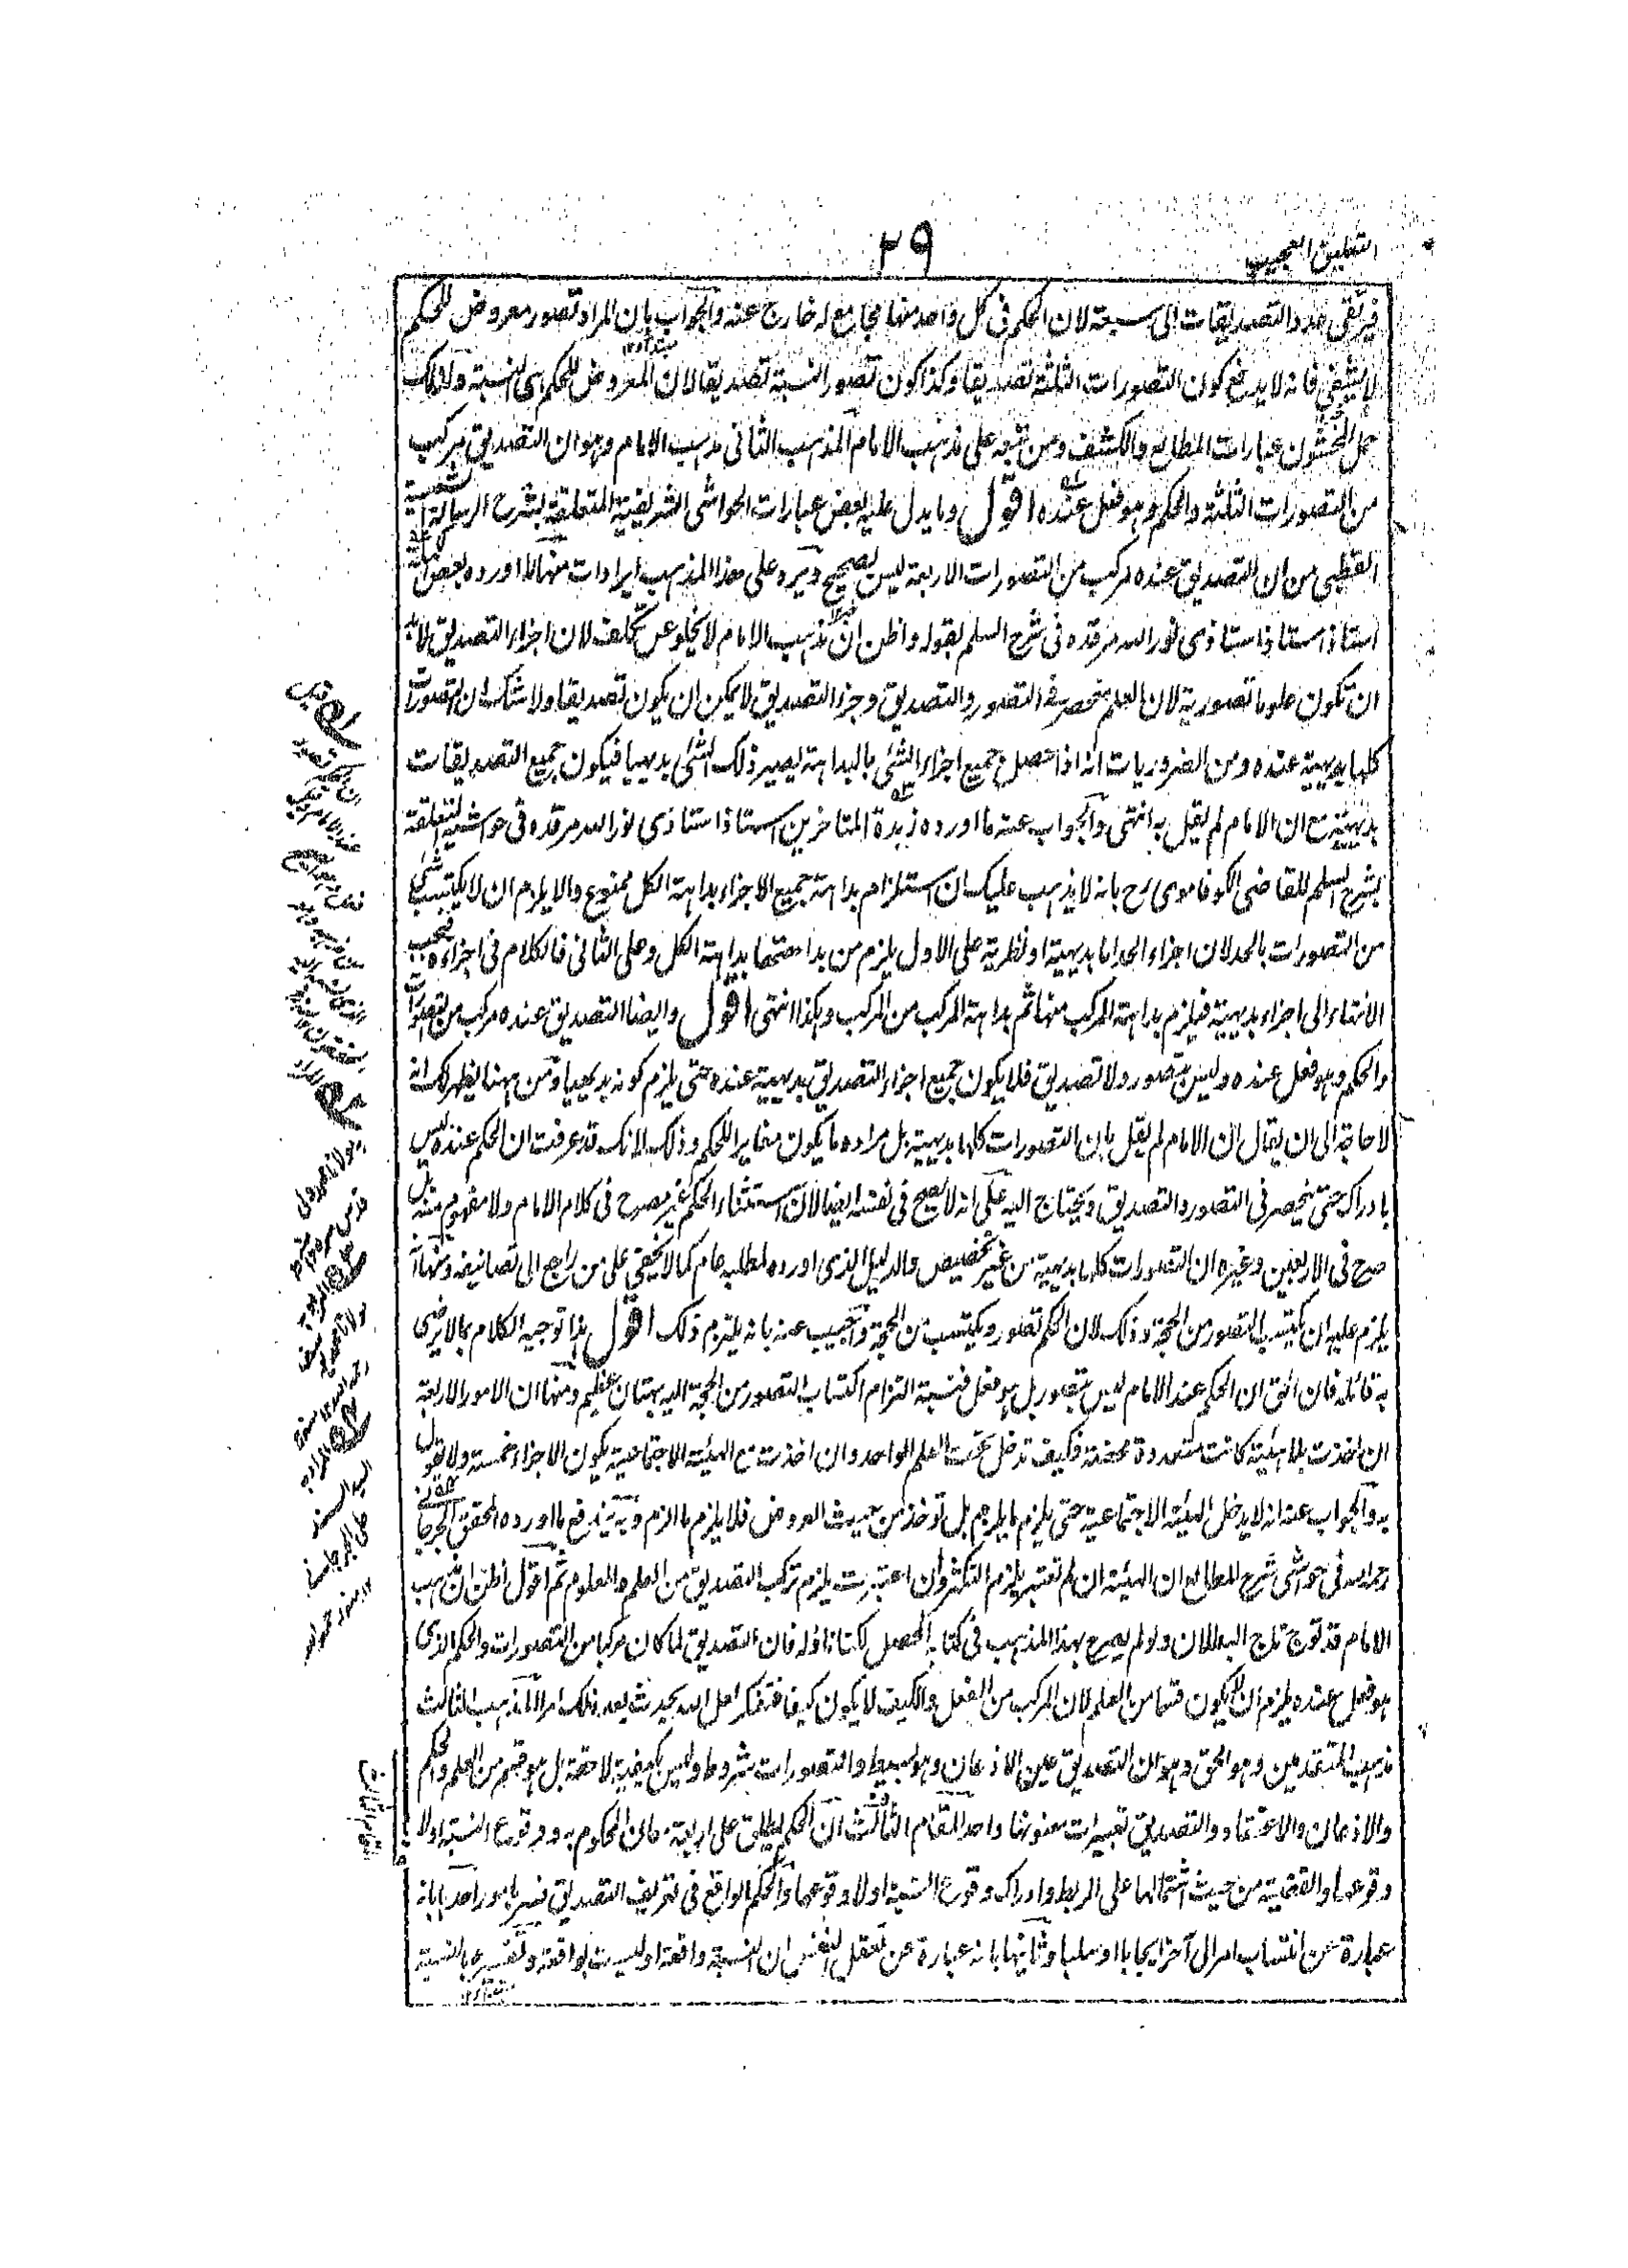 التعليق العجيب
٢٩
فيرتقي عدد التصديقات الى سبعة لان الحكم فى كل واحد منها مجامع له خارج عنه والجواب بان المراد تصور معروض للحكم
لا يشفي فانه لا يدفع كون التصورات الثلثة تصديقا وكذا كون تصور النسبة تصديقا لان المعروض للحكم هى النسبة ولذلك
حمل المحشون عبارات المطالع والكشف ومن تبعه على مذهب الامام المذهب الثانى مذهب الامام وهو ان التصديق مركب
من التصورات الثلثة والحكم وهو فعل عنده اقول وما يدل عليه بعض عبارات الحواشى الشريفية المتعلقة بشرح الرسالة الشمسية
القطبى من ان التصديق عنده مركب من التصورات الاربعة ليس بصحيح ويرد على هذا المذهب ايرادات منها ما اورده بعض
استاذ استاذ استاذى نور الله مرقده فى شرح السلم بقوله واظن ان مذهب الامام لا يخلو عن تكلف لان اجزاء التصديق لا بد
ان تكون علوما تصورية لان العلم منحصر فى التصور والتصديق وجزء التصديق لا يمكن ان يكون تصديقا ولا شك ان التصورات
كلها بديهية عنده ومن الضروريات انه اذا حصل جميع اجزاء الشئ بالبداهة يصير ذلك الشئ بديهيا فيكون جميع التصديقات
بديهية مع ان الامام لم يقل به انتهى والجواب عنه ما اورده زبدة المتاخرين استاذ استاذى نور الله مرقده فى حواشيه المتعلقة
بشرح السلم للقاضى الكوفاموى رح بانه لا يذهب عليك ان استلزام بداهة جميع الاجزاء بداهة الكل ممنوع والا يلزم ان لا يكتسب شئ
من التصورات بالحد لان اجزاء الحد اما بديهية او نظرية على الاول يلزم من بداهتها بداهة الكل وعلى الثانى فالكلام فى اجزاءه فيجب
الانتهاء الى اجزاء بديهية فيلزم بداهة المركب منها ثم بداهة المركب من المركب وهكذا انتهى اقول وايضا التصديق عنده مركب من التصورات
والحكم وهو فعل عنده وليس بتصور ولا تصديق فلا يكون جميع اجزاء التصديق بديهية عنده حتى يلزم كونه بديهيا ومن ههنا يظهر لك انه
لا حاجة الى ان يقال ان الامام لم يقل بان التصورات كلها بديهية بل مراده ما يكون مغايرا للحكم وذلك لانك قد عرفت ان الحكم عنده ليس
بادراك حتى ينحصر فى التصور والتصديق ويحتاج اليه على انه لا يصح فى نفسه ايضا لان استثناء الحكم غير مصرح فى كلام الامام ولا مفهوم منه بل
صرح فى الاربعين وغيره ان التصورات كلها بديهية من غير تخصيص والدليل الذى اورده لمطلبه عام كما لا يخفى على من راجع الى تصانيفه ومنها انه
يلزم عليه ان يكتسب التصور من الحجة وذلك لان الحكم تصور ويكتسب من الحجة واجيب عنه بانه يلتزم ذلك اقول هذا توجيه الكلام بما لا يرضى
به قائله فان الحق ان الحكم عند الامام ليس بتصور بل هو فعل فنسبة التزام اكتساب التصور من الحجة اليه بهتان عظيم ومنها ان الامور الاربعة
ان اخذت بلا هيئة كانت متعددة محضة فكيف تدخل تحت العلم الواحد وان اخذت مع الهيئة الاجتماعية يكون الاجزاء خمسة ولا يقول
به والجواب عنه انه لا يدخل الهيئة الاجتماعية حتى يلزم ما يلزم بل توخذ من حيث العروض فلا يلزم ما الزم وبه يندفع ما اورده المحقق الجرجانى
رحمه الله فى حواشى شرح المطالع ان الهيئة ان لم تعتبر يلزم التكثر وان اعتبرت يلزم تركب التصديق من العلم والمعلوم ثم اقول اظن ان مذهب
الامام قد توج بتاج البطلان ولو لم يصرح بهذا المذهب فى كتابه المحصل لكنا ناوله فان التصديق لما كان مركبا من التصورات والحكم الذى
هو فعل عنده يلزم ان لا يكون قسما من العلم لان المركب من الفعل والكيف لا يكون كيفا فتفكر لعل الله يحدث بعد ذلك امرا المذهب الثالث
مذهب المتقدمين وهو الحق وهو ان التصديق عين الاذعان وهو بسيط والتصورات شروط وليس بكيفية لاحقة بل هو قسم من العلم والحكم
والاذعان والاعتقاد والتصديق تعبيرات معنونها واحد المقام الثالث ان الحكم يطلق على اربعة معان المحكوم به ووقوع النسبة او لا
وقوعها والقضية من حيث اشتمالها على الربط وادراك وقوع النسبة او لا وقوعها والحكم الواقع فى تعريف التصديق فسر بامور احدها بانه
عبارة عن انتساب امر الى آخر ايجابا او سلبا وثانيها بانه عبارة عن تعقل النفس ان النسبة واقعة او ليست بواقعة وتفسيره بالنسبة